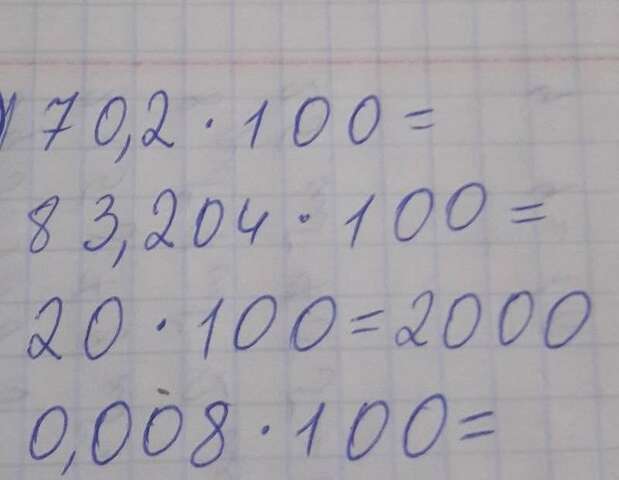 70,2 · 100 =
83,204 · 100 =
20 · 100 = 2000
0,008 · 100 =